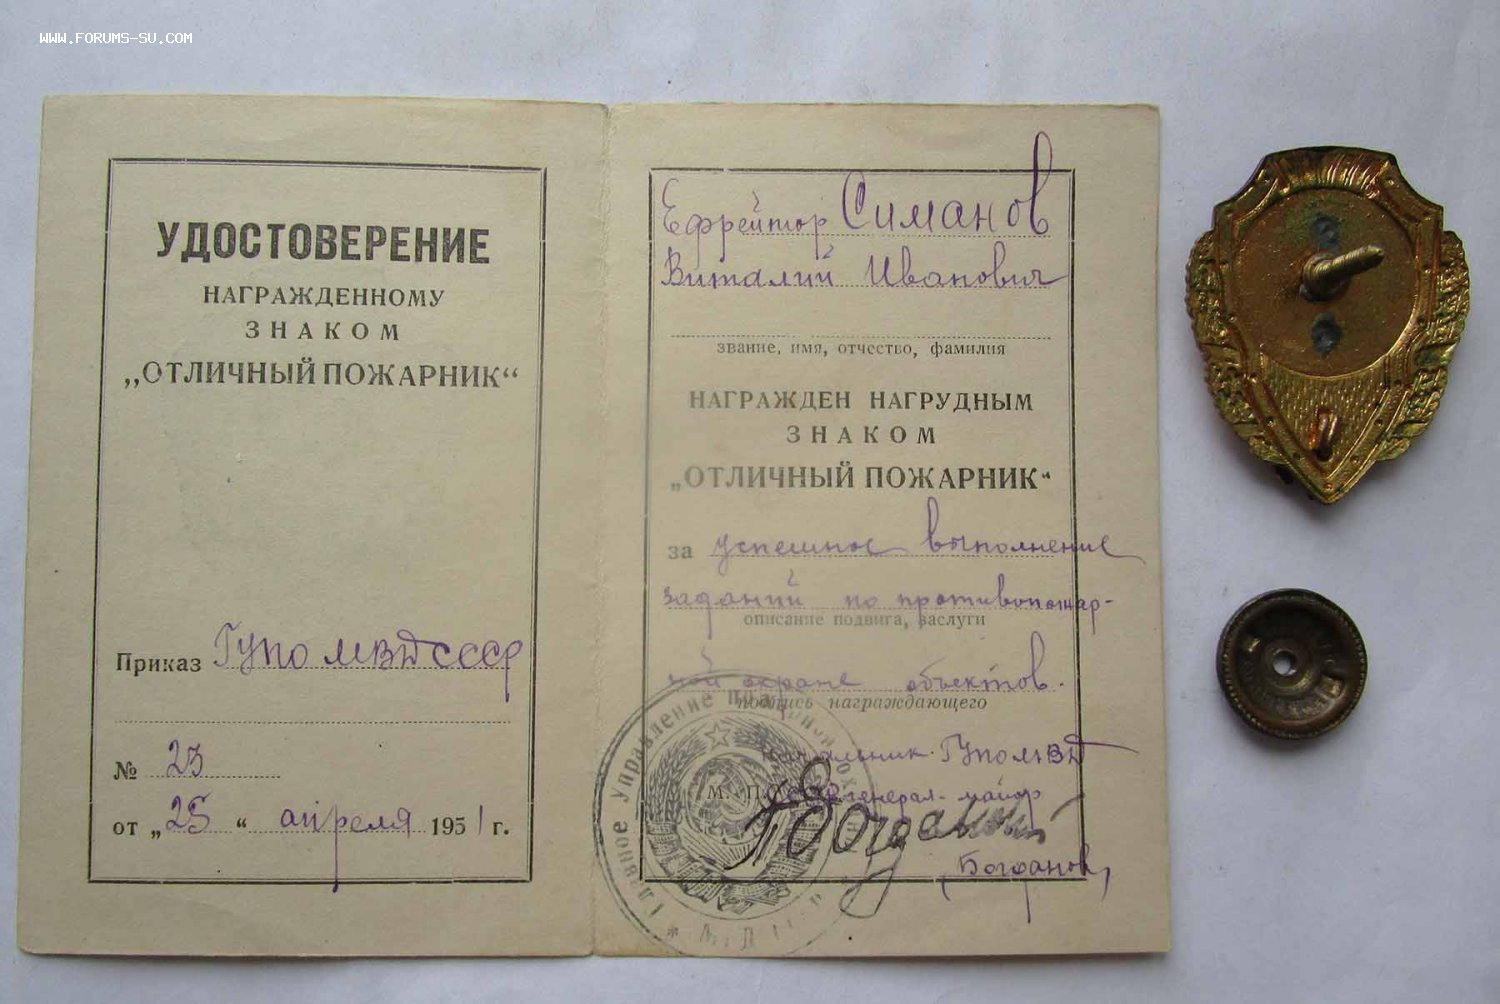 WWW.FORUMS-SU.COM
УДОСТОВЕРЕНИЕ
НАГРАЖДЕННОМУ
ЗНАКОМ
„ОТЛИЧНЫЙ ПОЖАРНИК“
Приказ ГУПО МВД СССР
№ 23
от „25“ апреля 1951 г.
Ефрейтор Симанов
Виталий Иванович
звание, имя, отчество, фамилия
НАГРАЖДЕН НАГРУДНЫМ
ЗНАКОМ
„ОТЛИЧНЫЙ ПОЖАРНИК“
за успешное выполнение
заданий по противопожар-
описание подвига, заслуги
ной охране объектов.
подпись награждающего
Начальник ГУПО МВД
М. П. генерал-майор
(Богданов)
Главное Управление Пожарной Охр